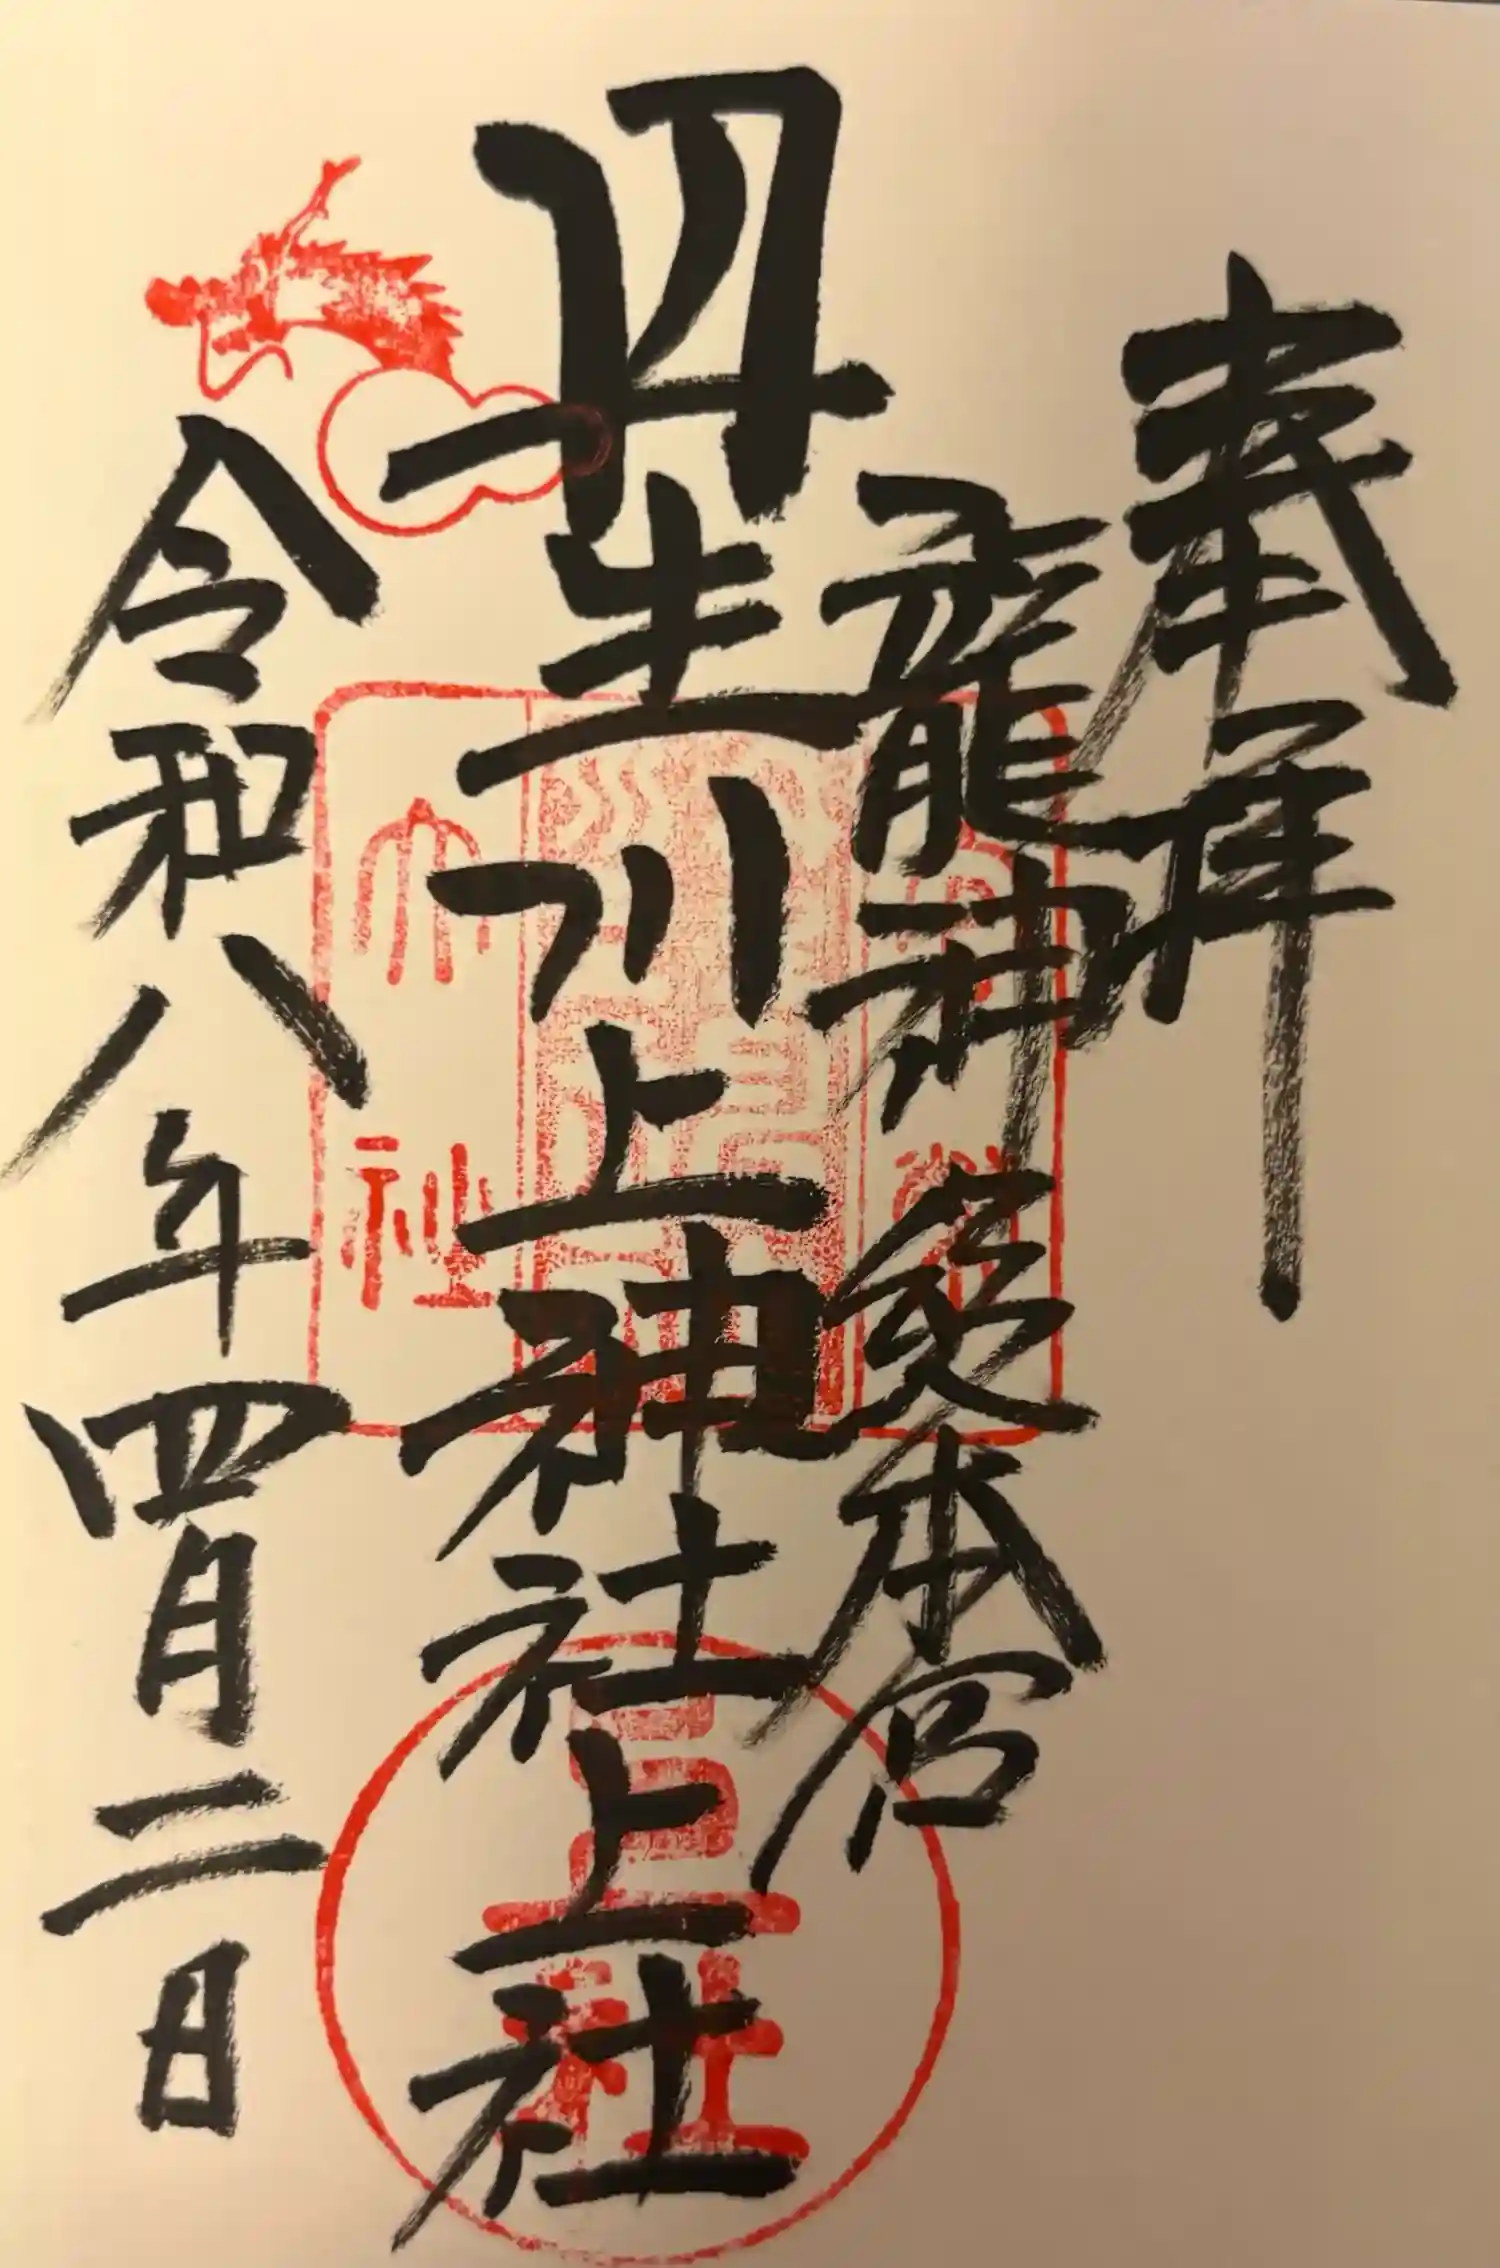 奉拝
龍神 本宮
丹生川上神社上社
令和八年四月二日
大社
上社